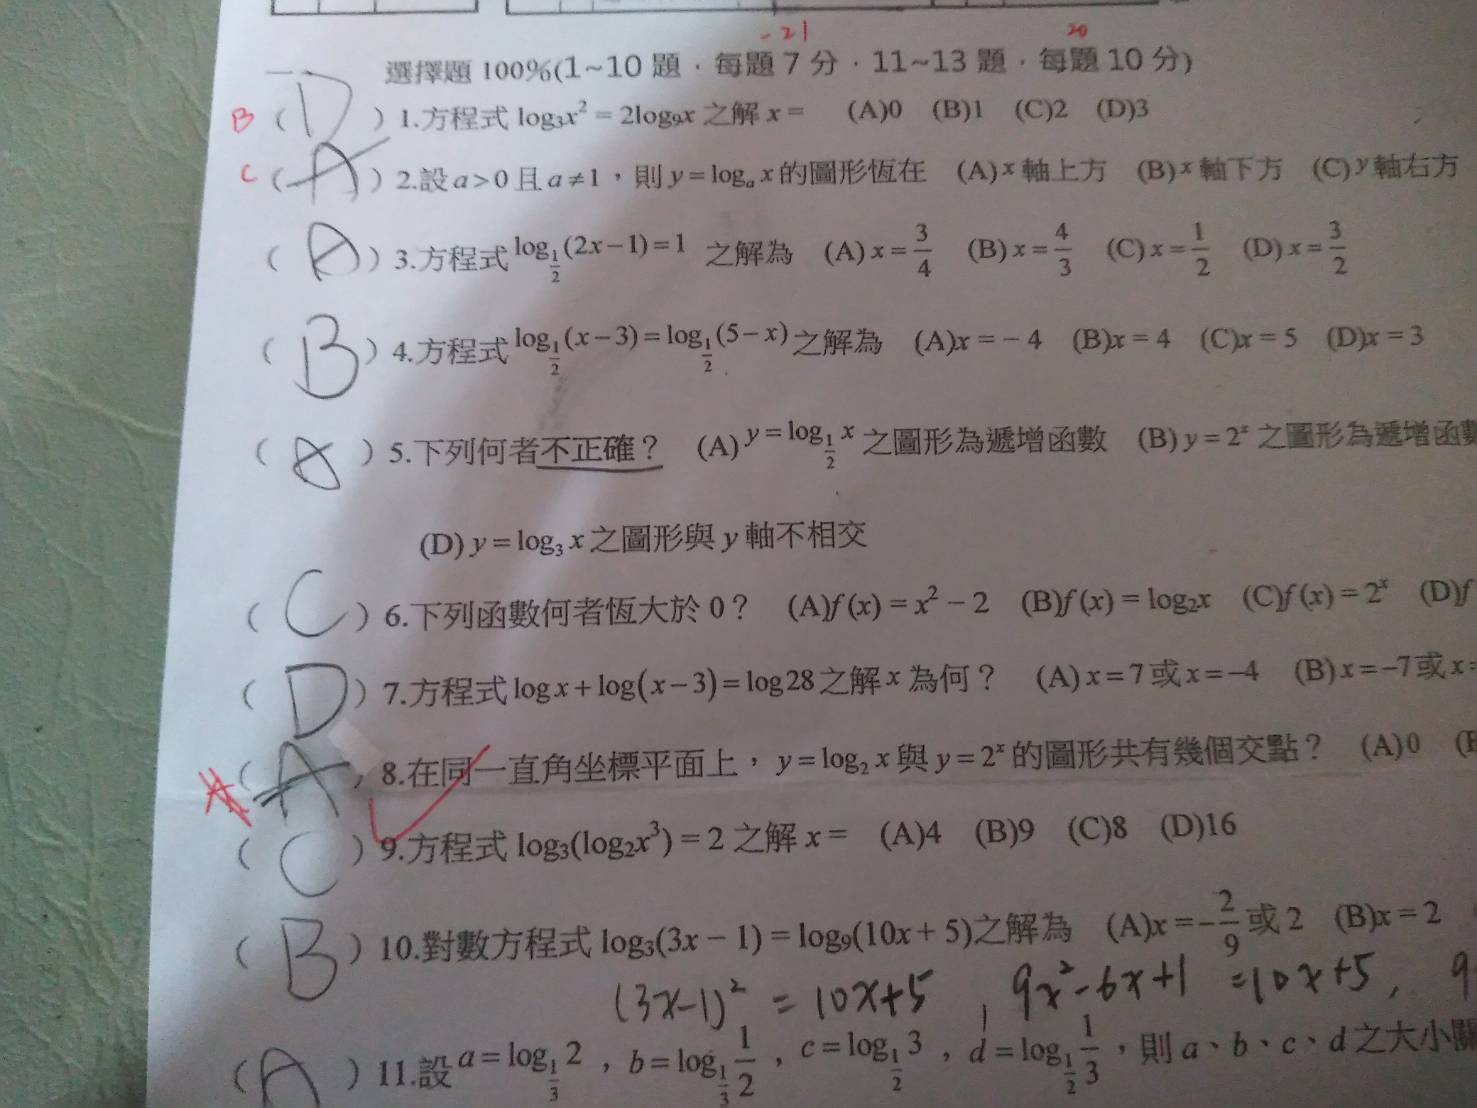 -21 20
選擇題 100%(1~10 題，每題 7 分，11~13 題，每題 10 分)
B ( D ) 1.方程式 log₃x² = 2log₉x 之解 x = (A)0 (B)1 (C)2 (D)3
C ( A ) 2.設 a > 0 且 a ≠ 1，則 y = logₐ x 的圖形恆在 (A) x 軸上方 (B) x 軸下方 (C) y 軸右方
( A ) 3.方程式 log_{1/2}(2x−1) = 1 之解為 (A) x = 3/4 (B) x = 4/3 (C) x = 1/2 (D) x = 3/2
( B ) 4.方程式 log_{1/2}(x−3) = log_{1/2}(5−x) 之解為 (A)x = − 4 (B)x = 4 (C)x = 5 (D)x = 3
( A ) 5.下列何者不正確？ (A) y = log_{1/2} x 之圖形為遞增函數 (B) y = 2ˣ 之圖形為遞增函數
(D) y = log₃ x 之圖形與 y 軸不相交
( C ) 6.下列函數何者恆大於 0？ (A)f (x) = x² − 2 (B)f (x) = log₂x (C)f (x) = 2ˣ (D)f
( D ) 7.方程式 log x + log(x − 3) = log 28 之解 x 為何？ (A) x = 7 或 x = −4 (B) x = −7 或 x =
( A ) 8.在同一直角坐標平面上，y = log₂ x 與 y = 2ˣ 的圖形共有幾個交點？ (A) 0
( C ) 9.方程式 log₃(log₂x³) = 2 之解 x = (A)4 (B)9 (C)8 (D)16
( B ) 10.對數方程式 log₃(3x − 1) = log₉(10x + 5)之解為 (A)x = −2/9 或 2 (B)x = 2
(3x-1)² = 10x+5 , 9x²-6x+1 =10x+5, 9
( A ) 11.設 a = log_{1/3} 2，b = log_{1/3} 1/2，c = log_{1/2} 3，d = log_{1/2} 1/3，則 a、b、c、d 之大小關